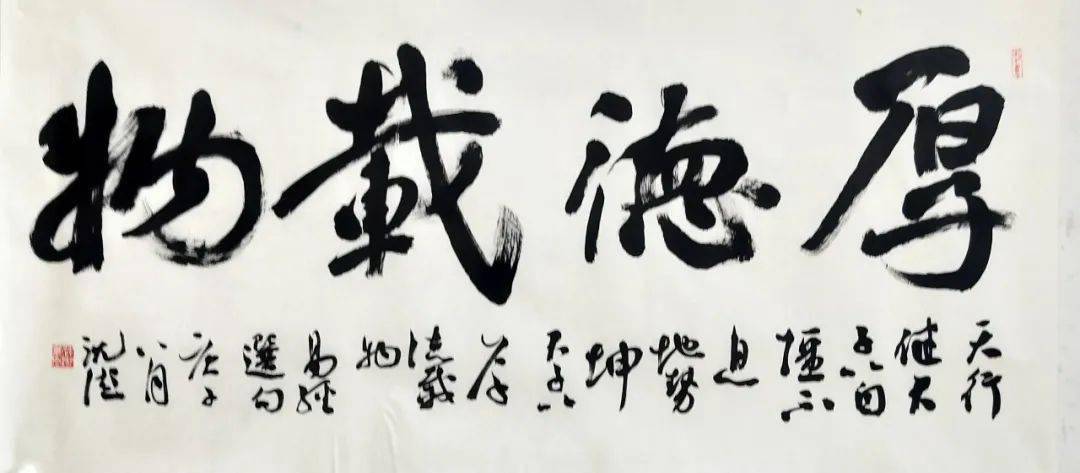 厚德載物
天行
健君
子以自
彊不
息
地勢
坤
君子以
厚
德載
物
易經
選句
庚子
八月
沈